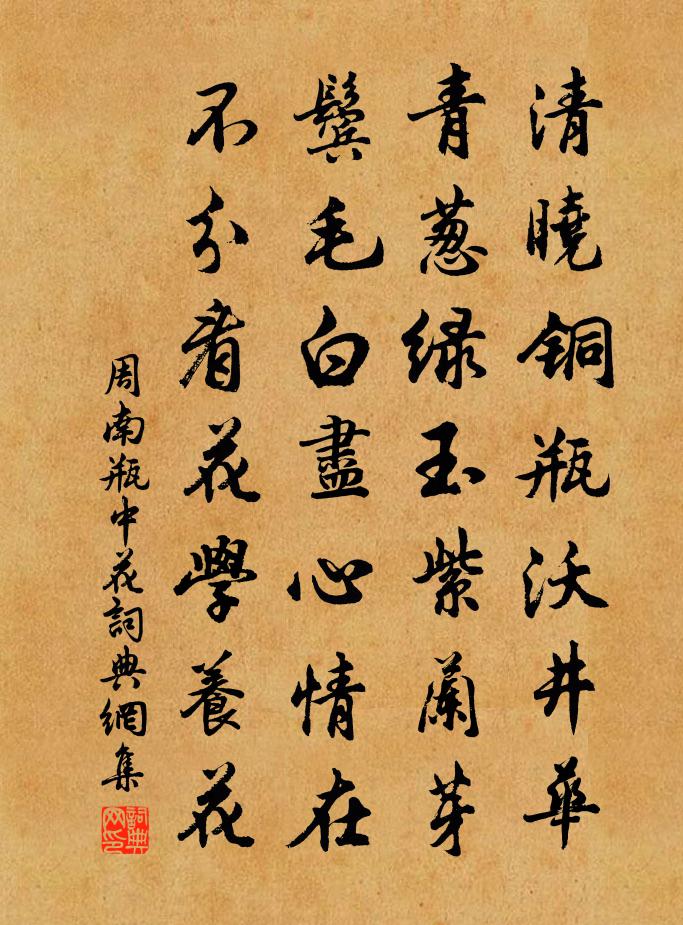 清曉銅瓶沃井華
青葱緑玉紫蘭芽
鬢毛白盡心情在
不分看花學養花
周南瓶中花詞典網集
詞典网印